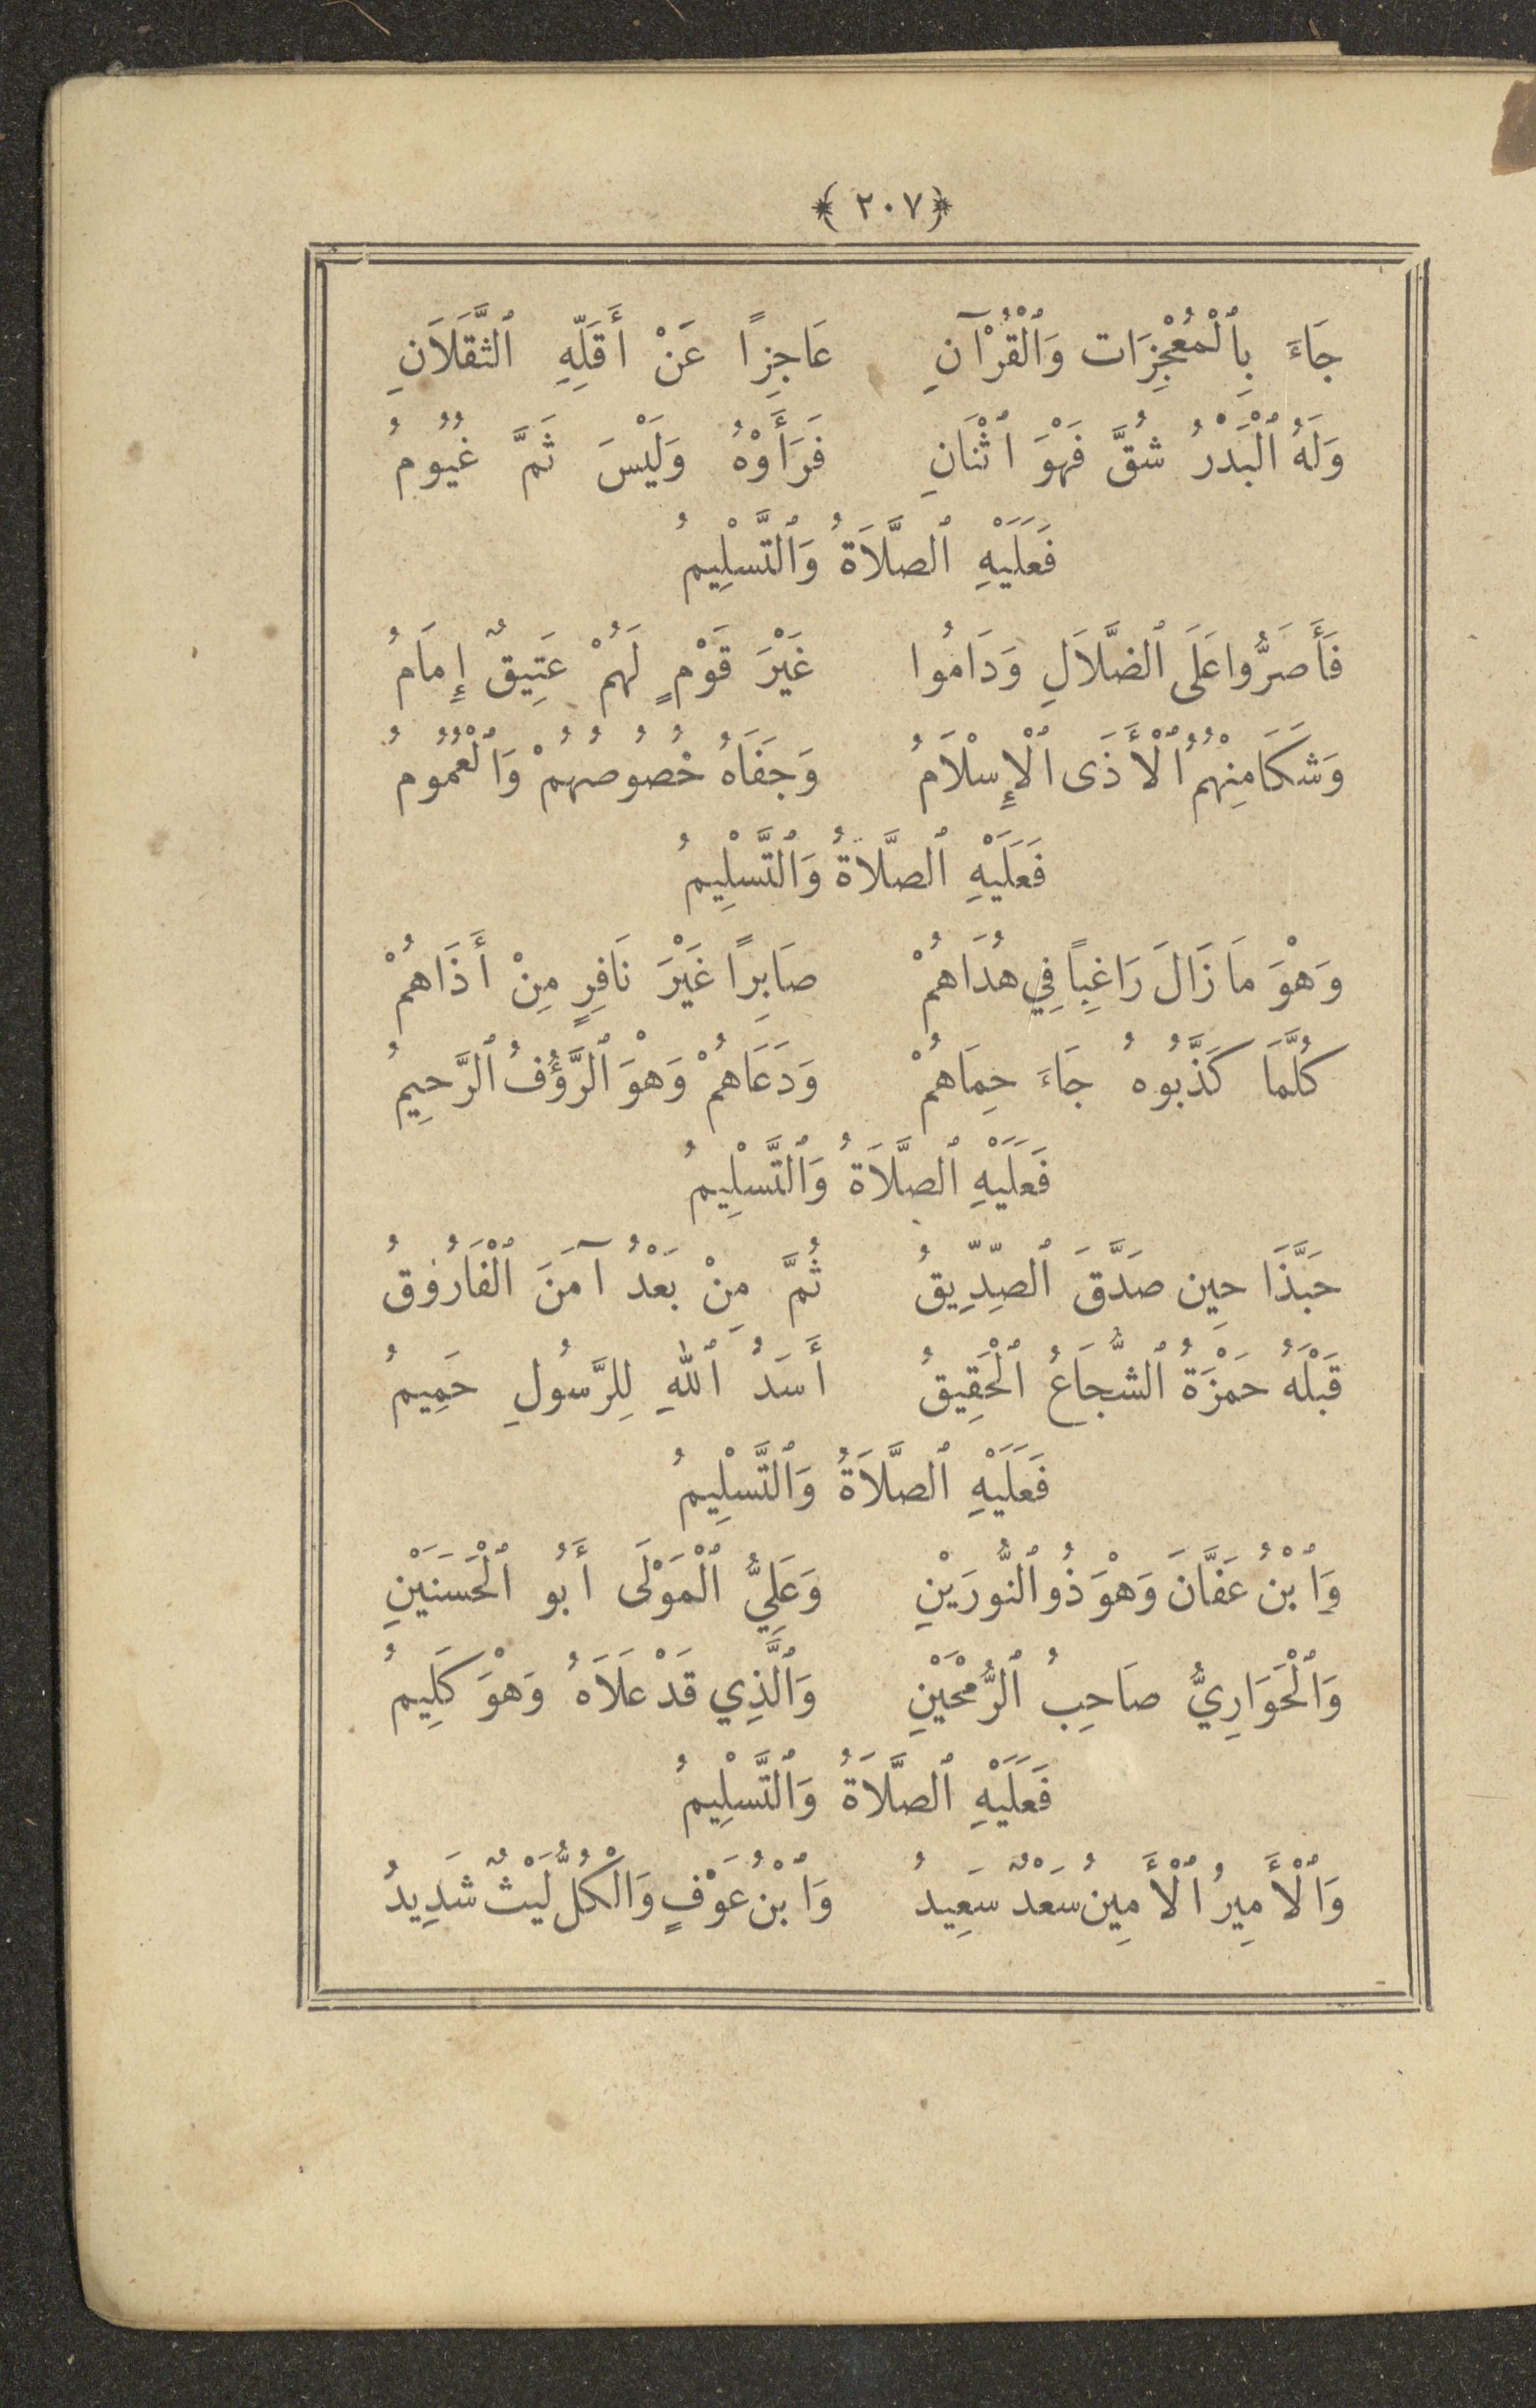 ﴿٢٠٧﴾
جَاءَ بِٱلْمُعْجِزَات وَٱلْقُرْآنِ عَاجِزًا عَنْ أَقَلِّهِ ٱلثَّقَلَانِ
وَلَهُ ٱلْبَدْرُ شُقَّ فَهْوَ ٱثْنَانِ فَرَأَوْهُ وَلَيْسَ ثَمَّ غُيُومُ
فَعَلَيْهِ ٱلصَّلَاةُ وَٱلتَّسْلِيمُ
فَأَصَرُّوا عَلَى ٱلضَّلَالِ وَدَامُوا غَيْرَ قَوْمٍ لَهُمْ عَتِيقٌ إِمَامُ
وَشَكَا مِنْهُمُ ٱلْأَذَى ٱلْإِسْلَامُ وَجَفَاهُ خُصُوصُهُمْ وَٱلْعُمُومُ
فَعَلَيْهِ ٱلصَّلَاةُ وَٱلتَّسْلِيمُ
وَهْوَ مَا زَالَ رَاغِبًا فِي هُدَاهُمْ صَابِرًا غَيْرَ نَافِرٍ مِنْ أَذَاهُمْ
كُلَّمَا كَذَّبُوهُ جَاءَ حِمَاهُمْ وَدَعَاهُمْ وَهْوَ ٱلرَّؤُفُ ٱلرَّحِيمُ
فَعَلَيْهِ ٱلصَّلَاةُ وَٱلتَّسْلِيمُ
حَبَّذَا حِين صَدَّقَ ٱلصِّدِّيقُ ثُمَّ مِنْ بَعْدُ آمَنَ ٱلْفَارُوقُ
قَبْلَهُ حَمْزَةُ ٱلشُّجَاعُ ٱلْحَقِيقُ أَسَدُ ٱللهِ لِلرَّسُولِ حَمِيمُ
فَعَلَيْهِ ٱلصَّلَاةُ وَٱلتَّسْلِيمُ
وَٱبْنُ عَفَّانَ وَهْوَ ذُو ٱلنُّورَيْنِ وَعَلِيُّ ٱلْمَوْلَى أَبُو ٱلْحَسَنَيْنِ
وَٱلْحَوَارِيُّ صَاحِبُ ٱلرُّمْحَيْنِ وَٱلَّذِي قَدْ عَلَاهُ وَهْوَ كَلِيمُ
فَعَلَيْهِ ٱلصَّلَاةُ وَٱلتَّسْلِيمُ
وَٱلْأَمِيرُ ٱلْأَمِينُ سَعْدٌ سَعِيدُ وَٱبْنُ عَوْفٍ وَٱلْكُلُّ لَيْثٌ شَدِيدُ